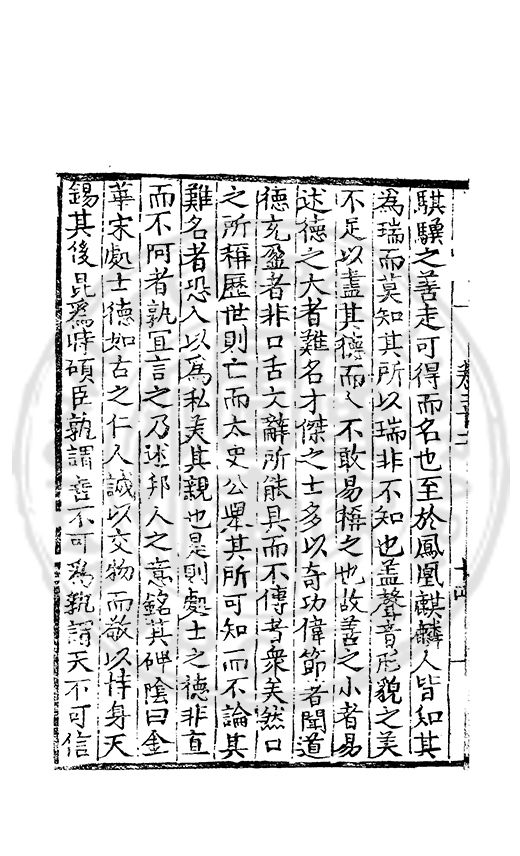 騏驥之善走可得而名也至於鳳凰麒麟人皆知其
為瑞而莫知其所以瑞非不知也盖聲音形貌之美
不足以盡其德而人不敢易稱之也故善之小者易
述德之大者難名才傑之士多以奇功偉節著聞道
德充盈者非口舌文辭所能具而不傳者衆矣然口
之所稱歷世則亡而太史公舉其所可知而不論其
難名者恐人以為私美其親也是則處士之德非直
而不阿者孰宜言之乃述邦人之意銘其碑陰曰金
華宋處士德如古之仁人誠以交物而敬以恃身天
錫其後昆為時碩臣孰謂善不可為孰謂天不可信